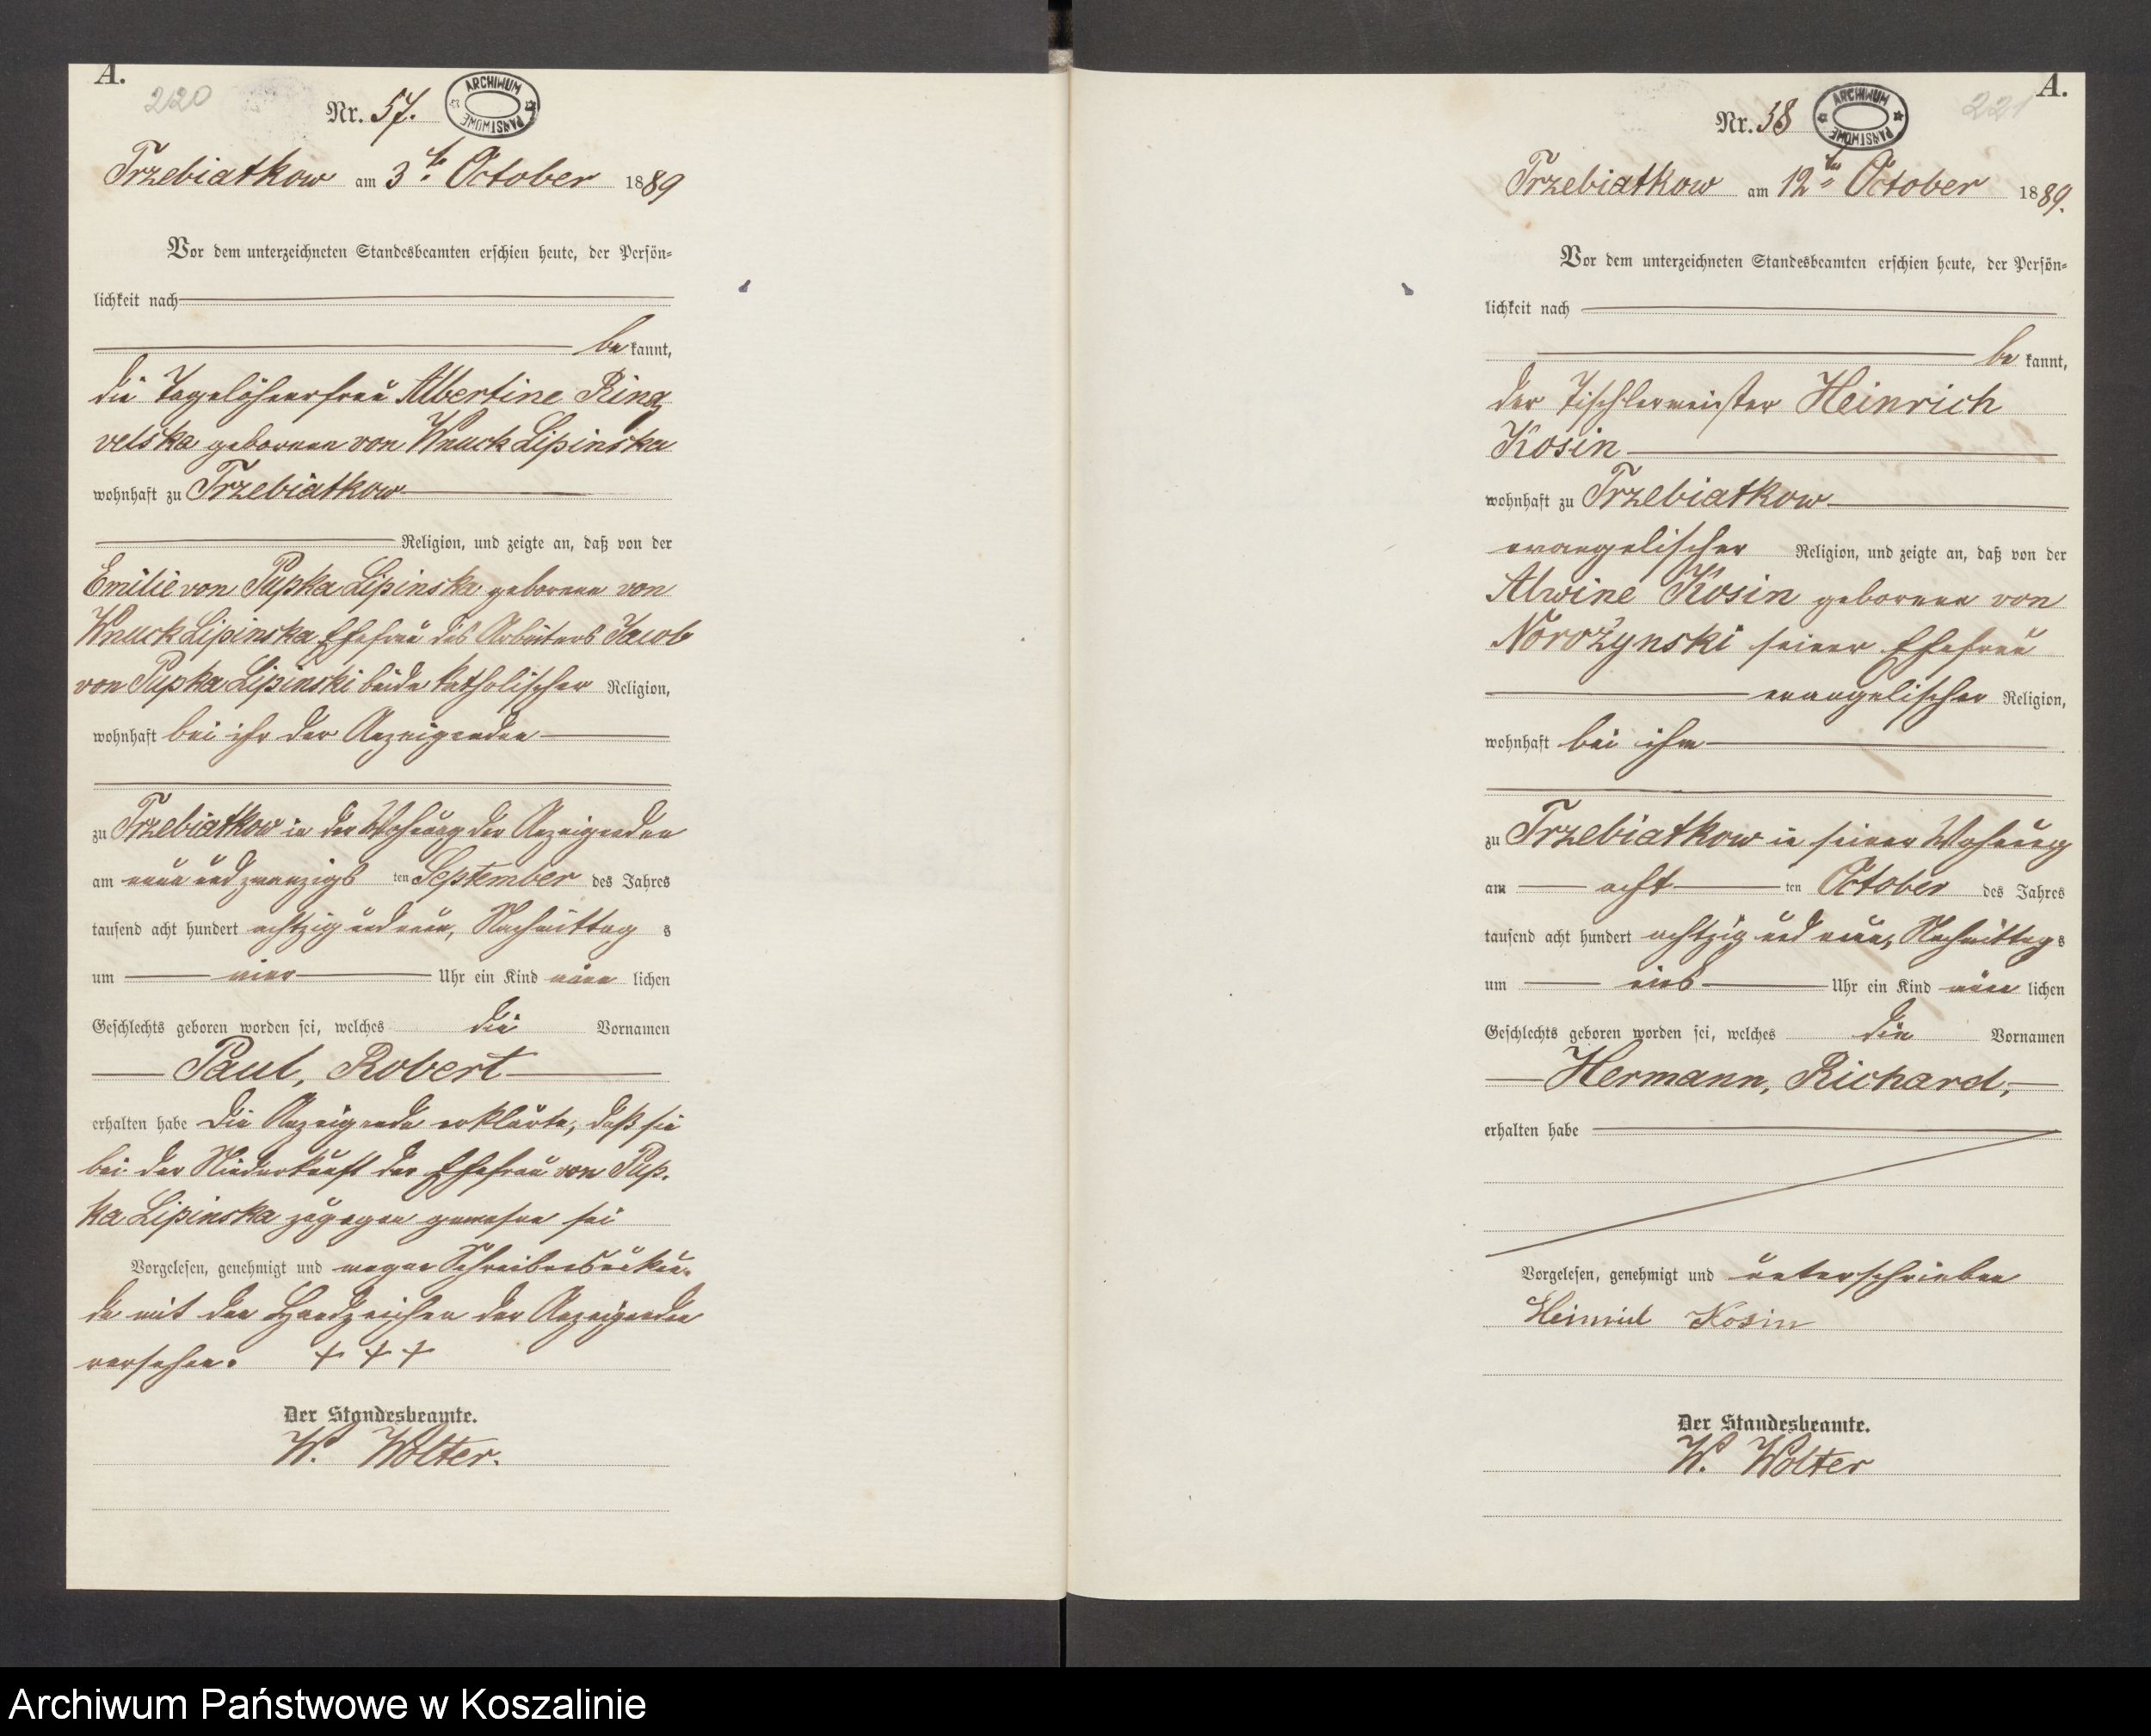 A.
220
Nr. 57.
ARCHIWUM PAŃSTWOWE
Trzebiatkow am 3ten October 1889
Vor dem unterzeichneten Standesbeamten erschien heute, der Persön-
lichkeit nach
bekannt,
die Tagelöhnerfrau Albertine
geborenen von Wnuck Lipinska
wohnhaft zu Trzebiatkow
Religion, und zeigte an, daß von der
Emilie von Pupka Lipinska geborenen von
Wnuck Lipinska Ehefrau des Arbeiters Jacob
von Pupka Lipinski beide katholischer Religion,
wohnhaft bei ihr der Anzeigenden
zu Trzebiatkow in der Wohnung der Anzeigenden
am neun und zwanzigsten September des Jahres
tausend acht hundert achtzig und neun, Nachmittags
um vier Uhr ein Kind männlichen
Geschlechts geboren worden sei, welches die Vornamen
Paul, Robert
erhalten habe Die Anzeigende erklärte, daß sie
bei der Niederkunft der Ehefrau von Pup-
ka Lipinska zugegen gewesen sei
Vorgelesen, genehmigt und wegen Schreibensunkun-
de mit den Handzeichen der Anzeigenden
versehen. + + +
Der Standesbeamte.
W. Wolter.
A.
221
Nr. 58
ARCHIWUM PAŃSTWOWE
Trzebiatkow am 12ten October 1889.
Vor dem unterzeichneten Standesbeamten erschien heute, der Persön-
lichkeit nach
bekannt,
der Tischlermeister Heinrich
Kosin
wohnhaft zu Trzebiatkow
evangelischer Religion, und zeigte an, daß von der
Alwine Kosin geborenen von
seiner Ehefrau
evangelischer Religion,
wohnhaft bei ihm
zu Trzebiatkow in seiner Wohnung
am achtten October des Jahres
tausend acht hundert achtzig und neun, Nachmittags
um eins Uhr ein Kind männlichen
Geschlechts geboren worden sei, welches die Vornamen
Hermann, Richard,
erhalten habe
Vorgelesen, genehmigt und unterschrieben
Heinrich Kosin
Der Standesbeamte.
W. Wolter
Archiwum Państwowe w Koszalinie